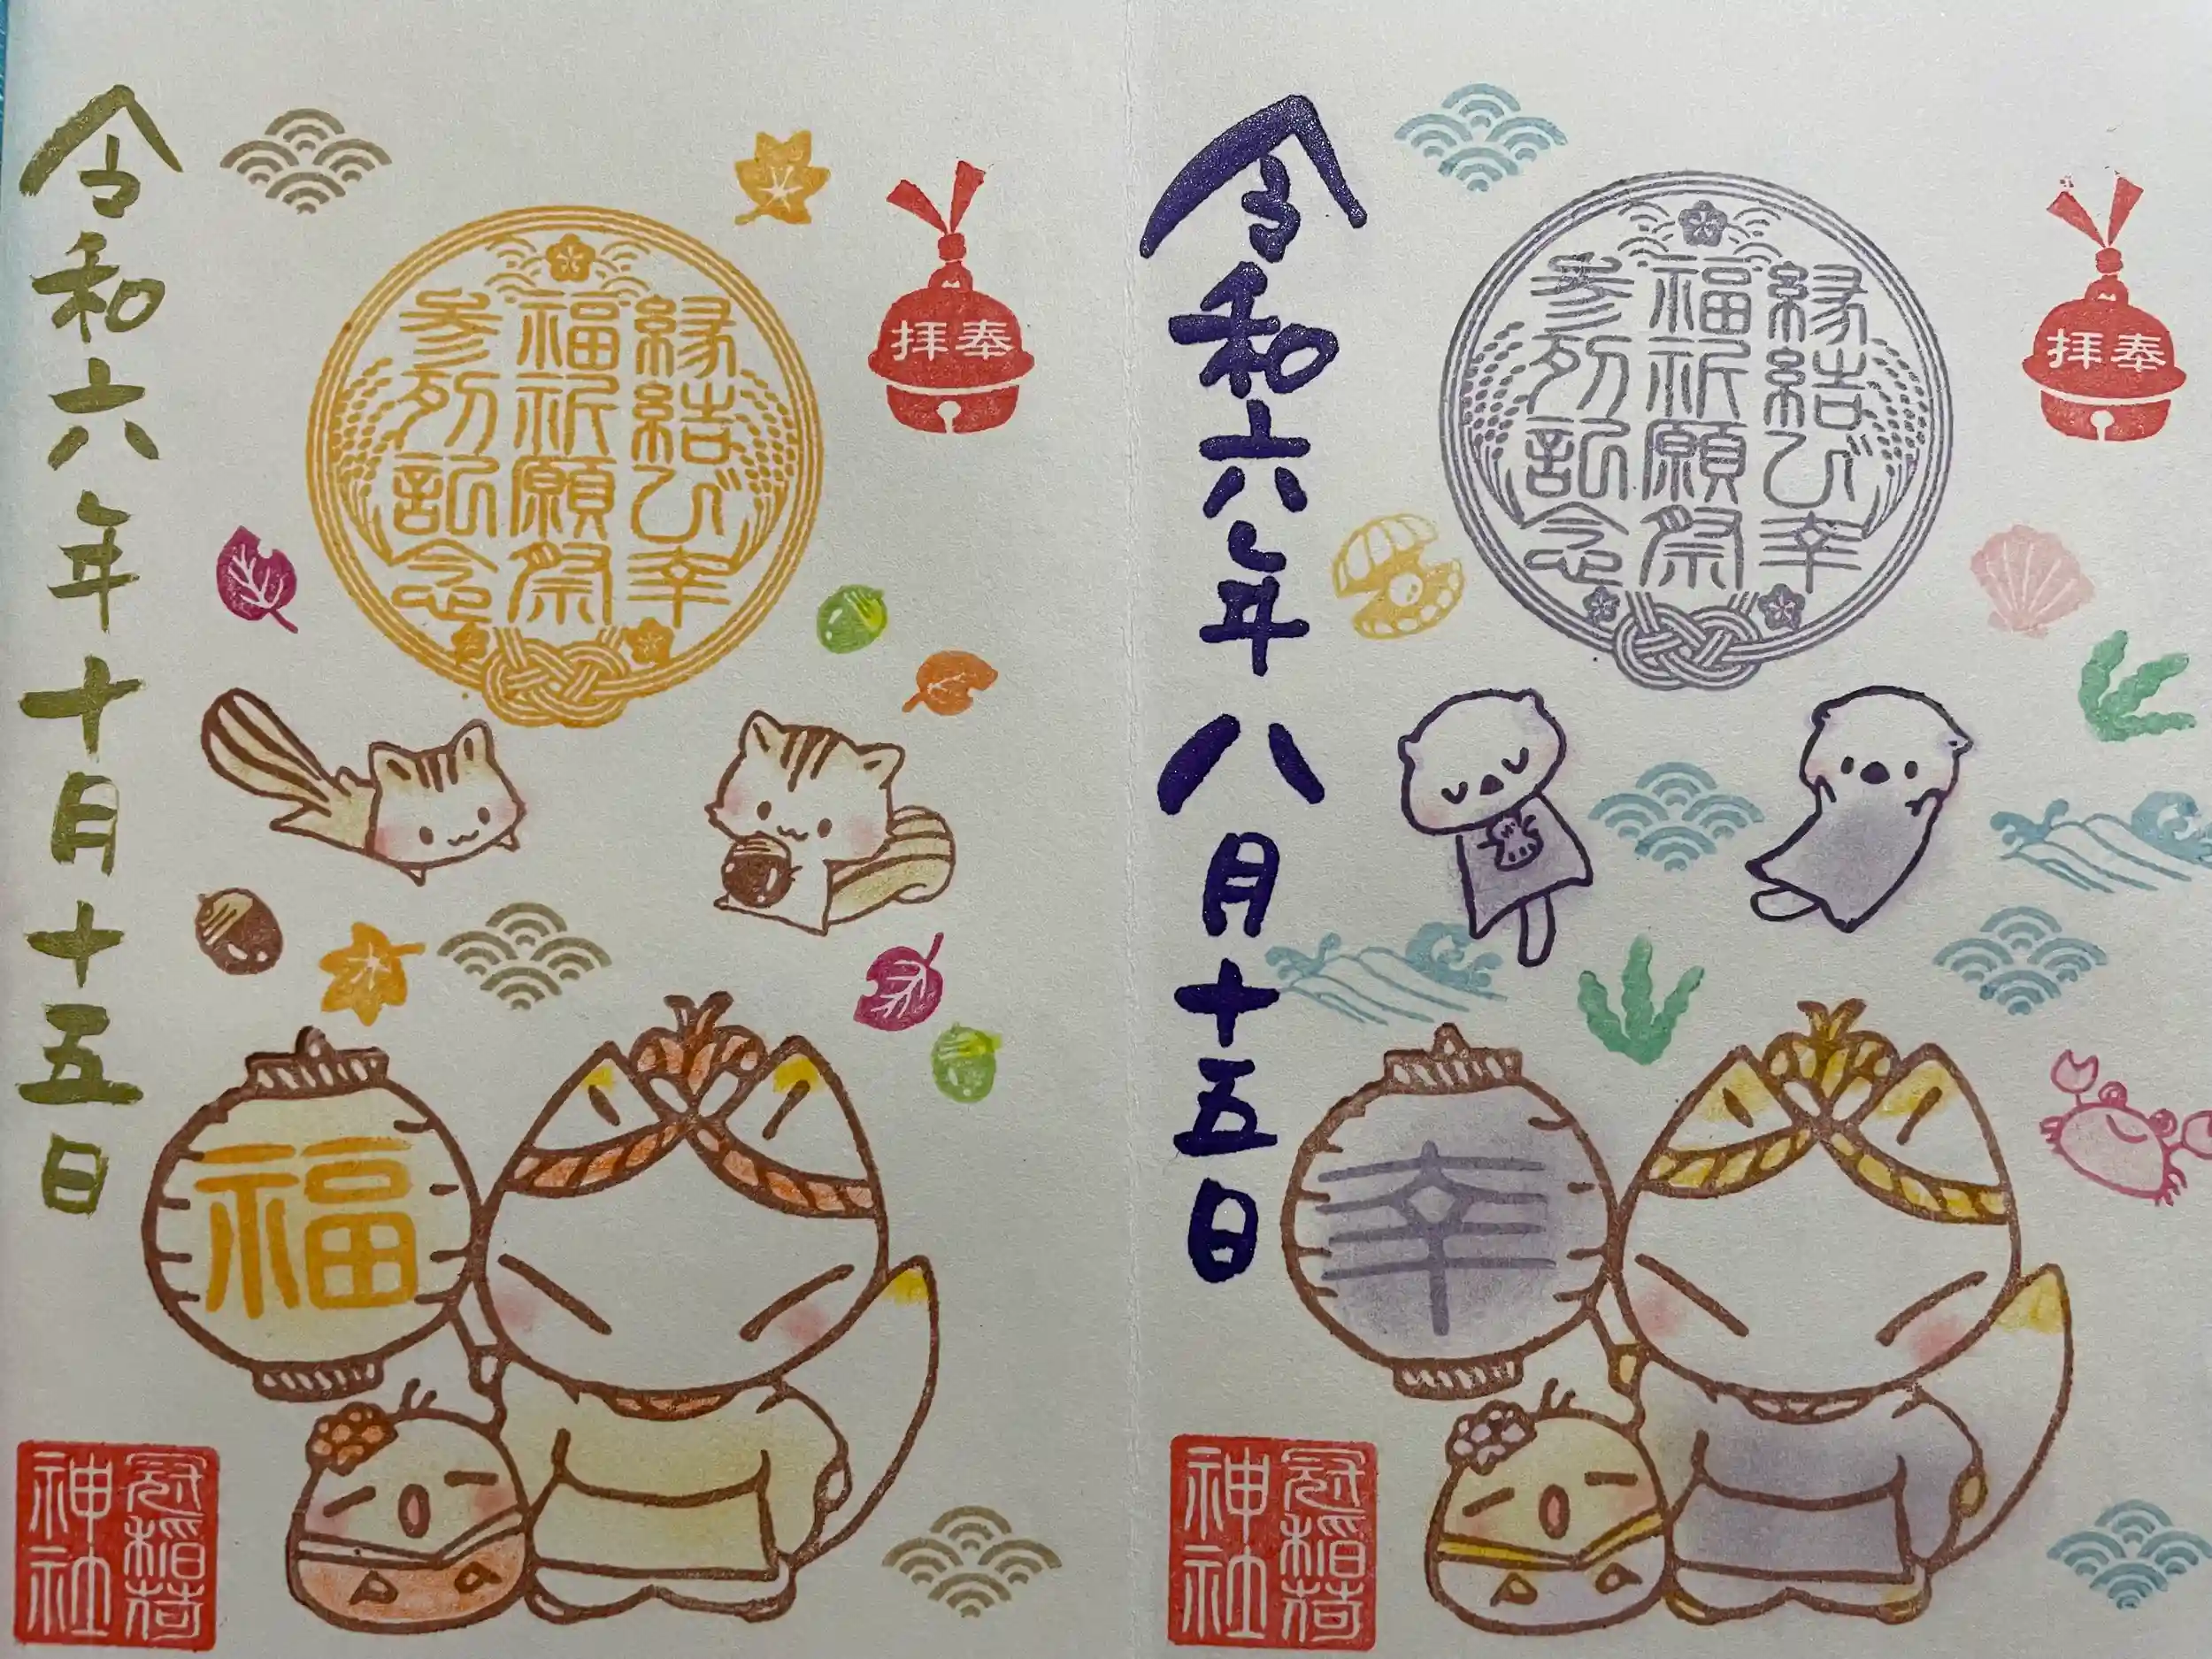 令和六年八月十五日
奉拝
縁結び幸
福祈願祭
参列記念
幸
冠稲荷
神社
令和六年十月十五日
奉拝
縁結び幸
福祈願祭
参列記念
福
冠稲荷
神社